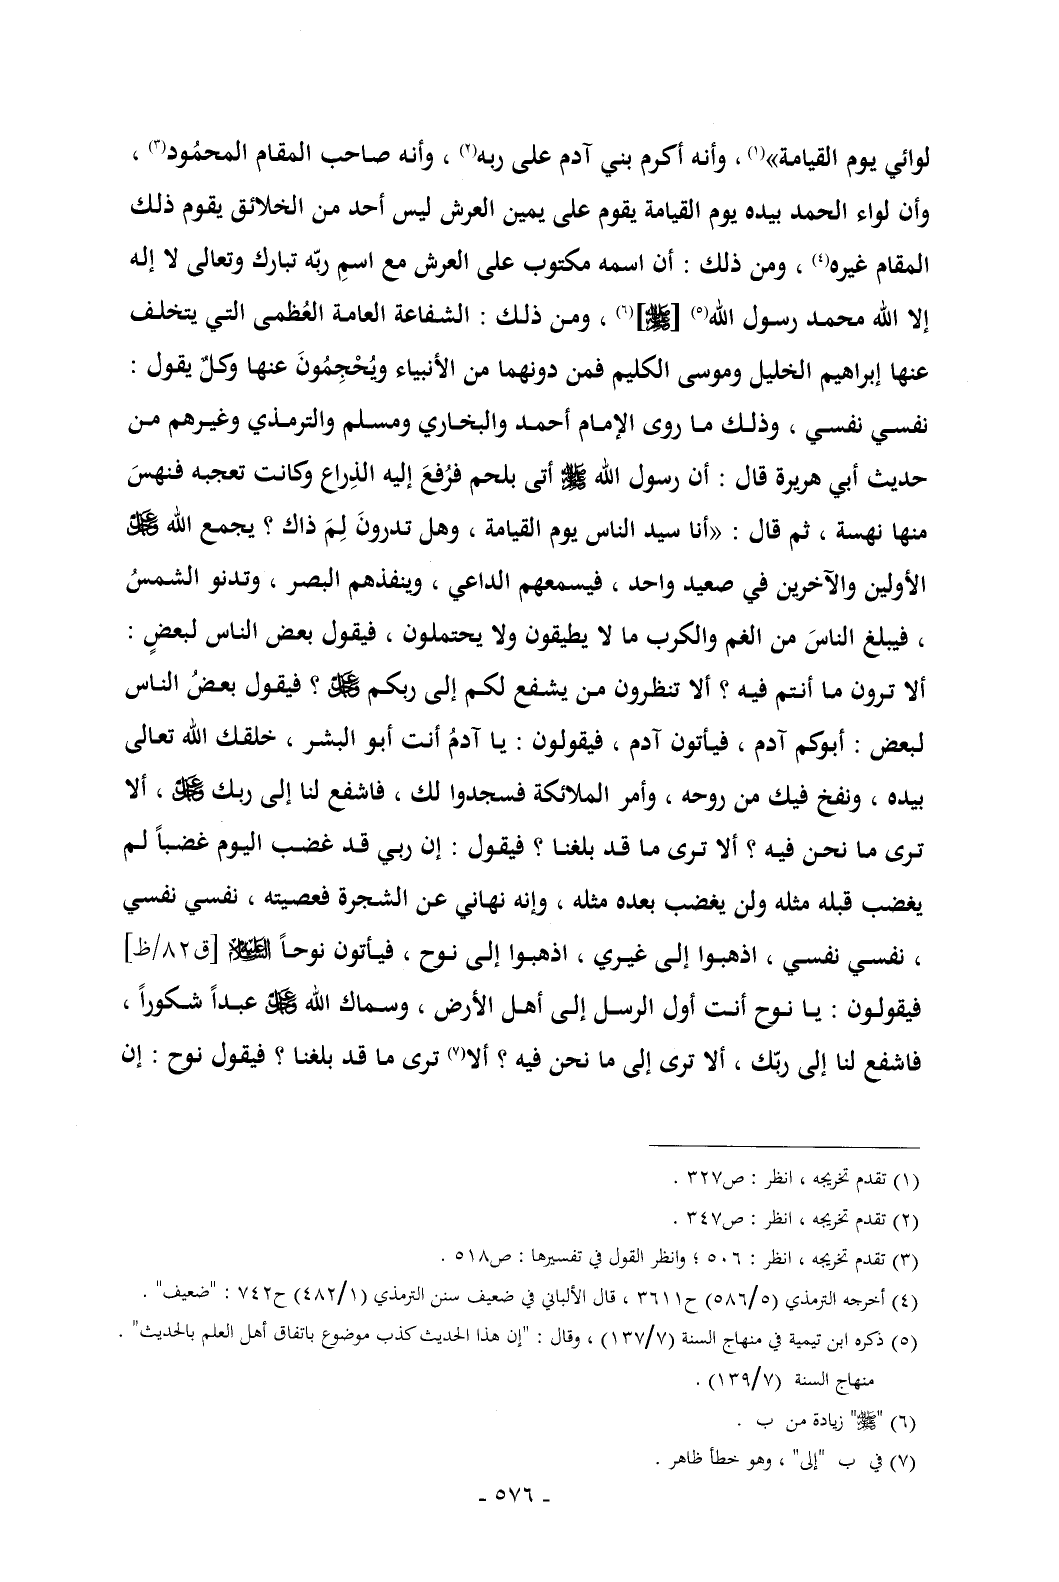 لوائي يوم القيامة»(١) ، وأنه أكرم بني آدم على ربه(٢) ، وأنه صاحب المقام المحمُود(٣) ،
وأن لواء الحمد بيده يوم القيامة يقوم على يمين العرش ليس أحد من الخلائق يقوم ذلك
المقام غيره(٤) ، ومن ذلك : أن اسمه مكتوب على العرش مع اسمِ ربّه تبارك وتعالى لا إله
إلا الله محمد رسول الله(٥) [ﷺ](٦) ، ومن ذلك : الشفاعة العامة العُظمى التي يتخلف
عنها إبراهيم الخليل وموسى الكليم فمن دونهما من الأنبياء ويُحْجِمُونَ عنها وكلٌ يقول :
نفسي نفسي ، وذلك ما روى الإمام أحمد والبخاري ومسلم والترمذي وغيرهم من
حديث أبي هريرة قال : أن رسول الله ﷺ أتى بلحم فرُفعَ إليه الذِراع وكانت تعجبه فنهسَ
منها نهسة ، ثم قال : «أنا سيد الناس يوم القيامة ، وهل تدرونَ لِمَ ذاك ؟ يجمع الله ﷻ
الأولين والآخرين في صعيد واحد ، فيسمعهم الداعي ، وينفذهم البصر ، وتدنو الشمسُ
، فيبلغ الناسَ من الغم والكرب ما لا يطيقون ولا يحتملون ، فيقول بعض الناس لبعضٍ :
ألا ترون ما أنتم فيه ؟ ألا تنظرون من يشفع لكم إلى ربكم ﷻ ؟ فيقول بعضُ الناس
لبعض : أبوكم آدم ، فيأتون آدم ، فيقولون : يا آدمُ أنت أبو البشر ، خلقك الله تعالى
بيده ، ونفخ فيك من روحه ، وأمر الملائكة فسجدوا لك ، فاشفع لنا إلى ربك ﷻ ، ألا
ترى ما نحن فيه ؟ ألا ترى ما قد بلغنا ؟ فيقول : إن ربي قد غضب اليوم غضباً لم
يغضب قبله مثله ولن يغضب بعده مثله ، وإنه نهاني عن الشجرة فعصيته ، نفسي نفسي
، نفسي نفسي ، اذهبوا إلى غيري ، اذهبوا إلى نوح ، فيأتون نوحاً عليه السلام [ق٨٢/ظ]
فيقولون : يا نوح أنت أول الرسل إلى أهل الأرض ، وسماك الله ﷻ عبداً شكوراً ،
فاشفع لنا إلى ربّك ، ألا ترى إلى ما نحن فيه ؟ ألا(٧) ترى ما قد بلغنا ؟ فيقول نوح : إن
(١) تقدم تخريجه ، انظر : ص٣٢٧ .
(٢) تقدم تخريجه ، انظر : ص٣٤٧ .
(٣) تقدم تخريجه ، انظر : ٥٠٦ ؛ وانظر القول في تفسيرها : ص٥١٨ .
(٤) أخرجه الترمذي (٥٨٦/٥) ح٣٦١١ ، قال الألباني في ضعيف سنن الترمذي (٤٨٢/١) ح٧٤٢ : "ضعيف" .
(٥) ذكره ابن تيمية في منهاج السنة (١٣٧/٧) ، وقال : "إن هذا الحديث كذب موضوع باتفاق أهل العلم بالحديث" .
منهاج السنة (١٣٩/٧) .
(٦) "ﷺ" زيادة من ب .
(٧) في ب "إلى" ، وهو خطأ ظاهر .
- ٥٧٦ -